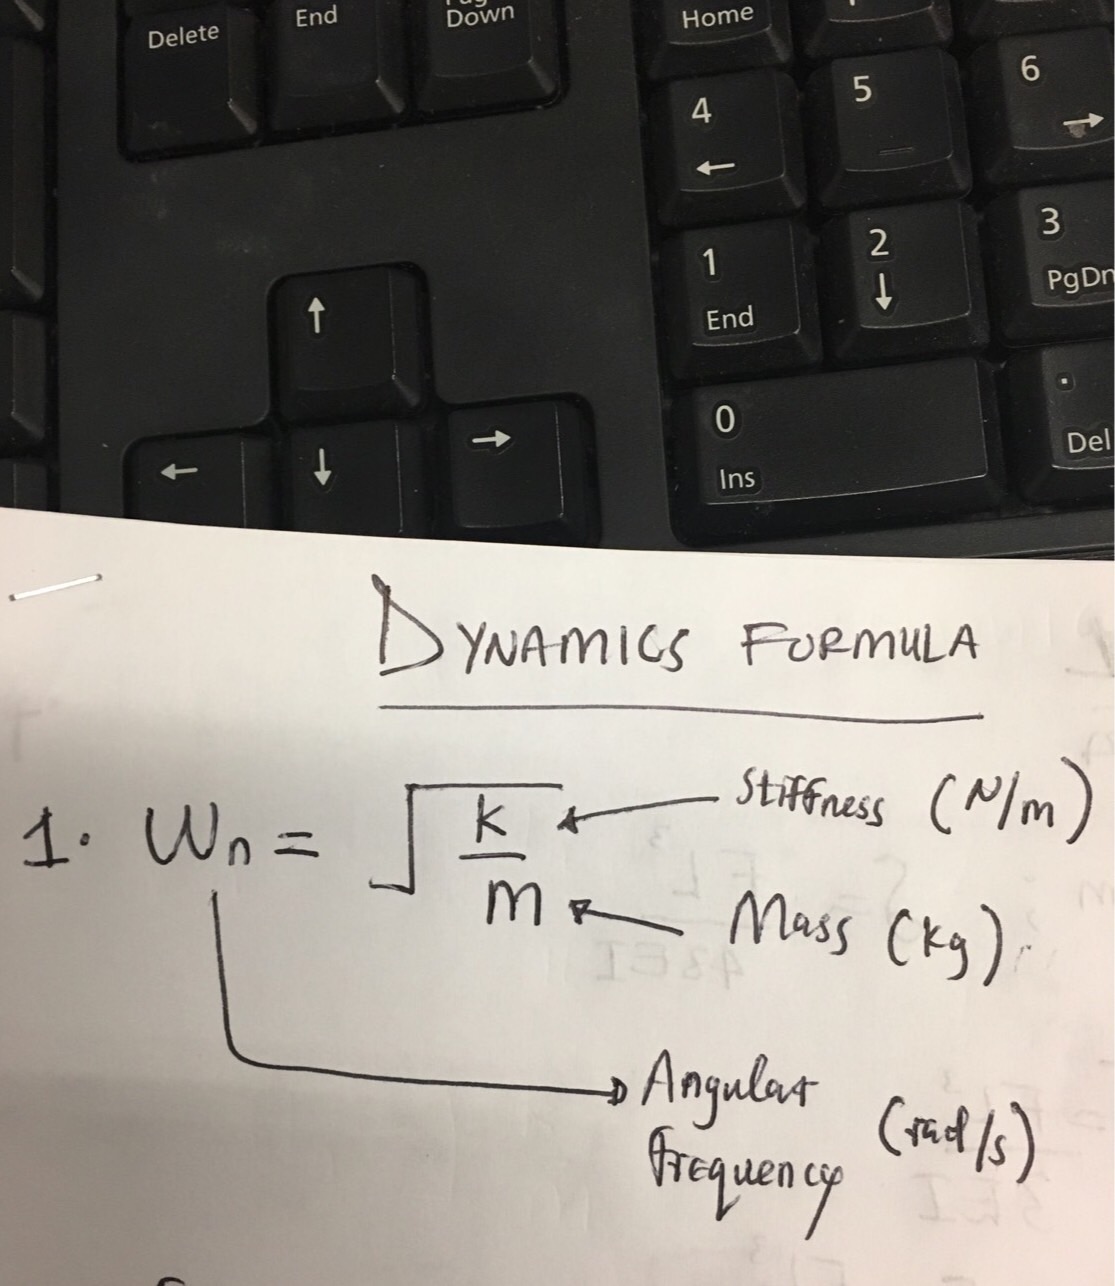 Delete
End
Down
Home
4
←
5
6
→
1
End
2
↓
3
PgDn
0
Ins
.
Del
↑
←
↓
→
DYNAMICS FORMULA
1. Wn = √(k/m)
Stiffness (N/m)
Mass (kg)
Angular
frequency (rad/s)